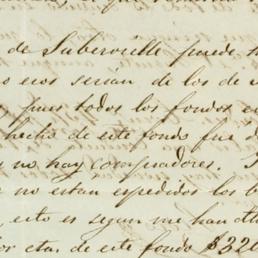 de Suberville puede
esos serian de los de
, pues todos los fondos
hecho de este fondo fue
y no hay compradores.
no estan espedidos los
, esto es segun me han
de este fondo $320